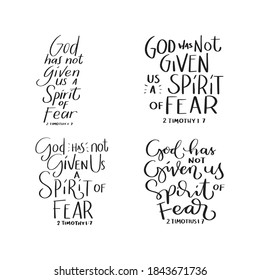 God
has not
Given
us a
Spirit
of
Fear
2 TIMOTHY 1:7
GOD HAS NOT
GIVEN
US A SPIRIT
OF FEAR
2 TIMOTHY 1:7
God HAS not
GIVEN US
A
SPIRIT OF
FEAR
2 TIMOTHY 1:7
God has
NOT
Given us
Spirit OF
Fear
2 TIMOTIUS 1:7
shutterstock.com · 1843671736